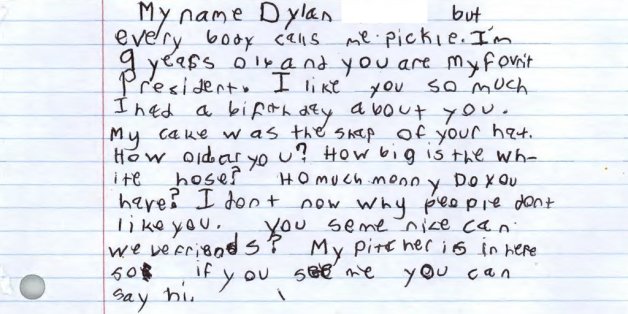 My name Dylan but
every body calls me pickle. I'm
9 years old and you are my fovrit
President. I like you so much
I had a birthday about you.
My cake was the shap of your hat.
How old ar you? How big is the wh-
ite hose? Ho much monny Do you
have? I dont now why people dont
like you. You seme nice can
we be friends? My pitcher is in here
so if you see me you can
say hi.